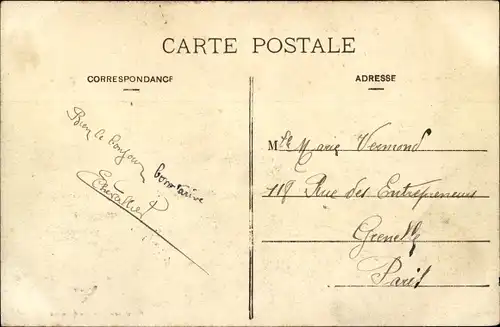 CARTE POSTALE
CORRESPONDANCE
Bien le bonjour
Chevallier
ADRESSE
Mlle Marie Vermond
118 Rue des Entrepreneurs
Grenelle
Paris